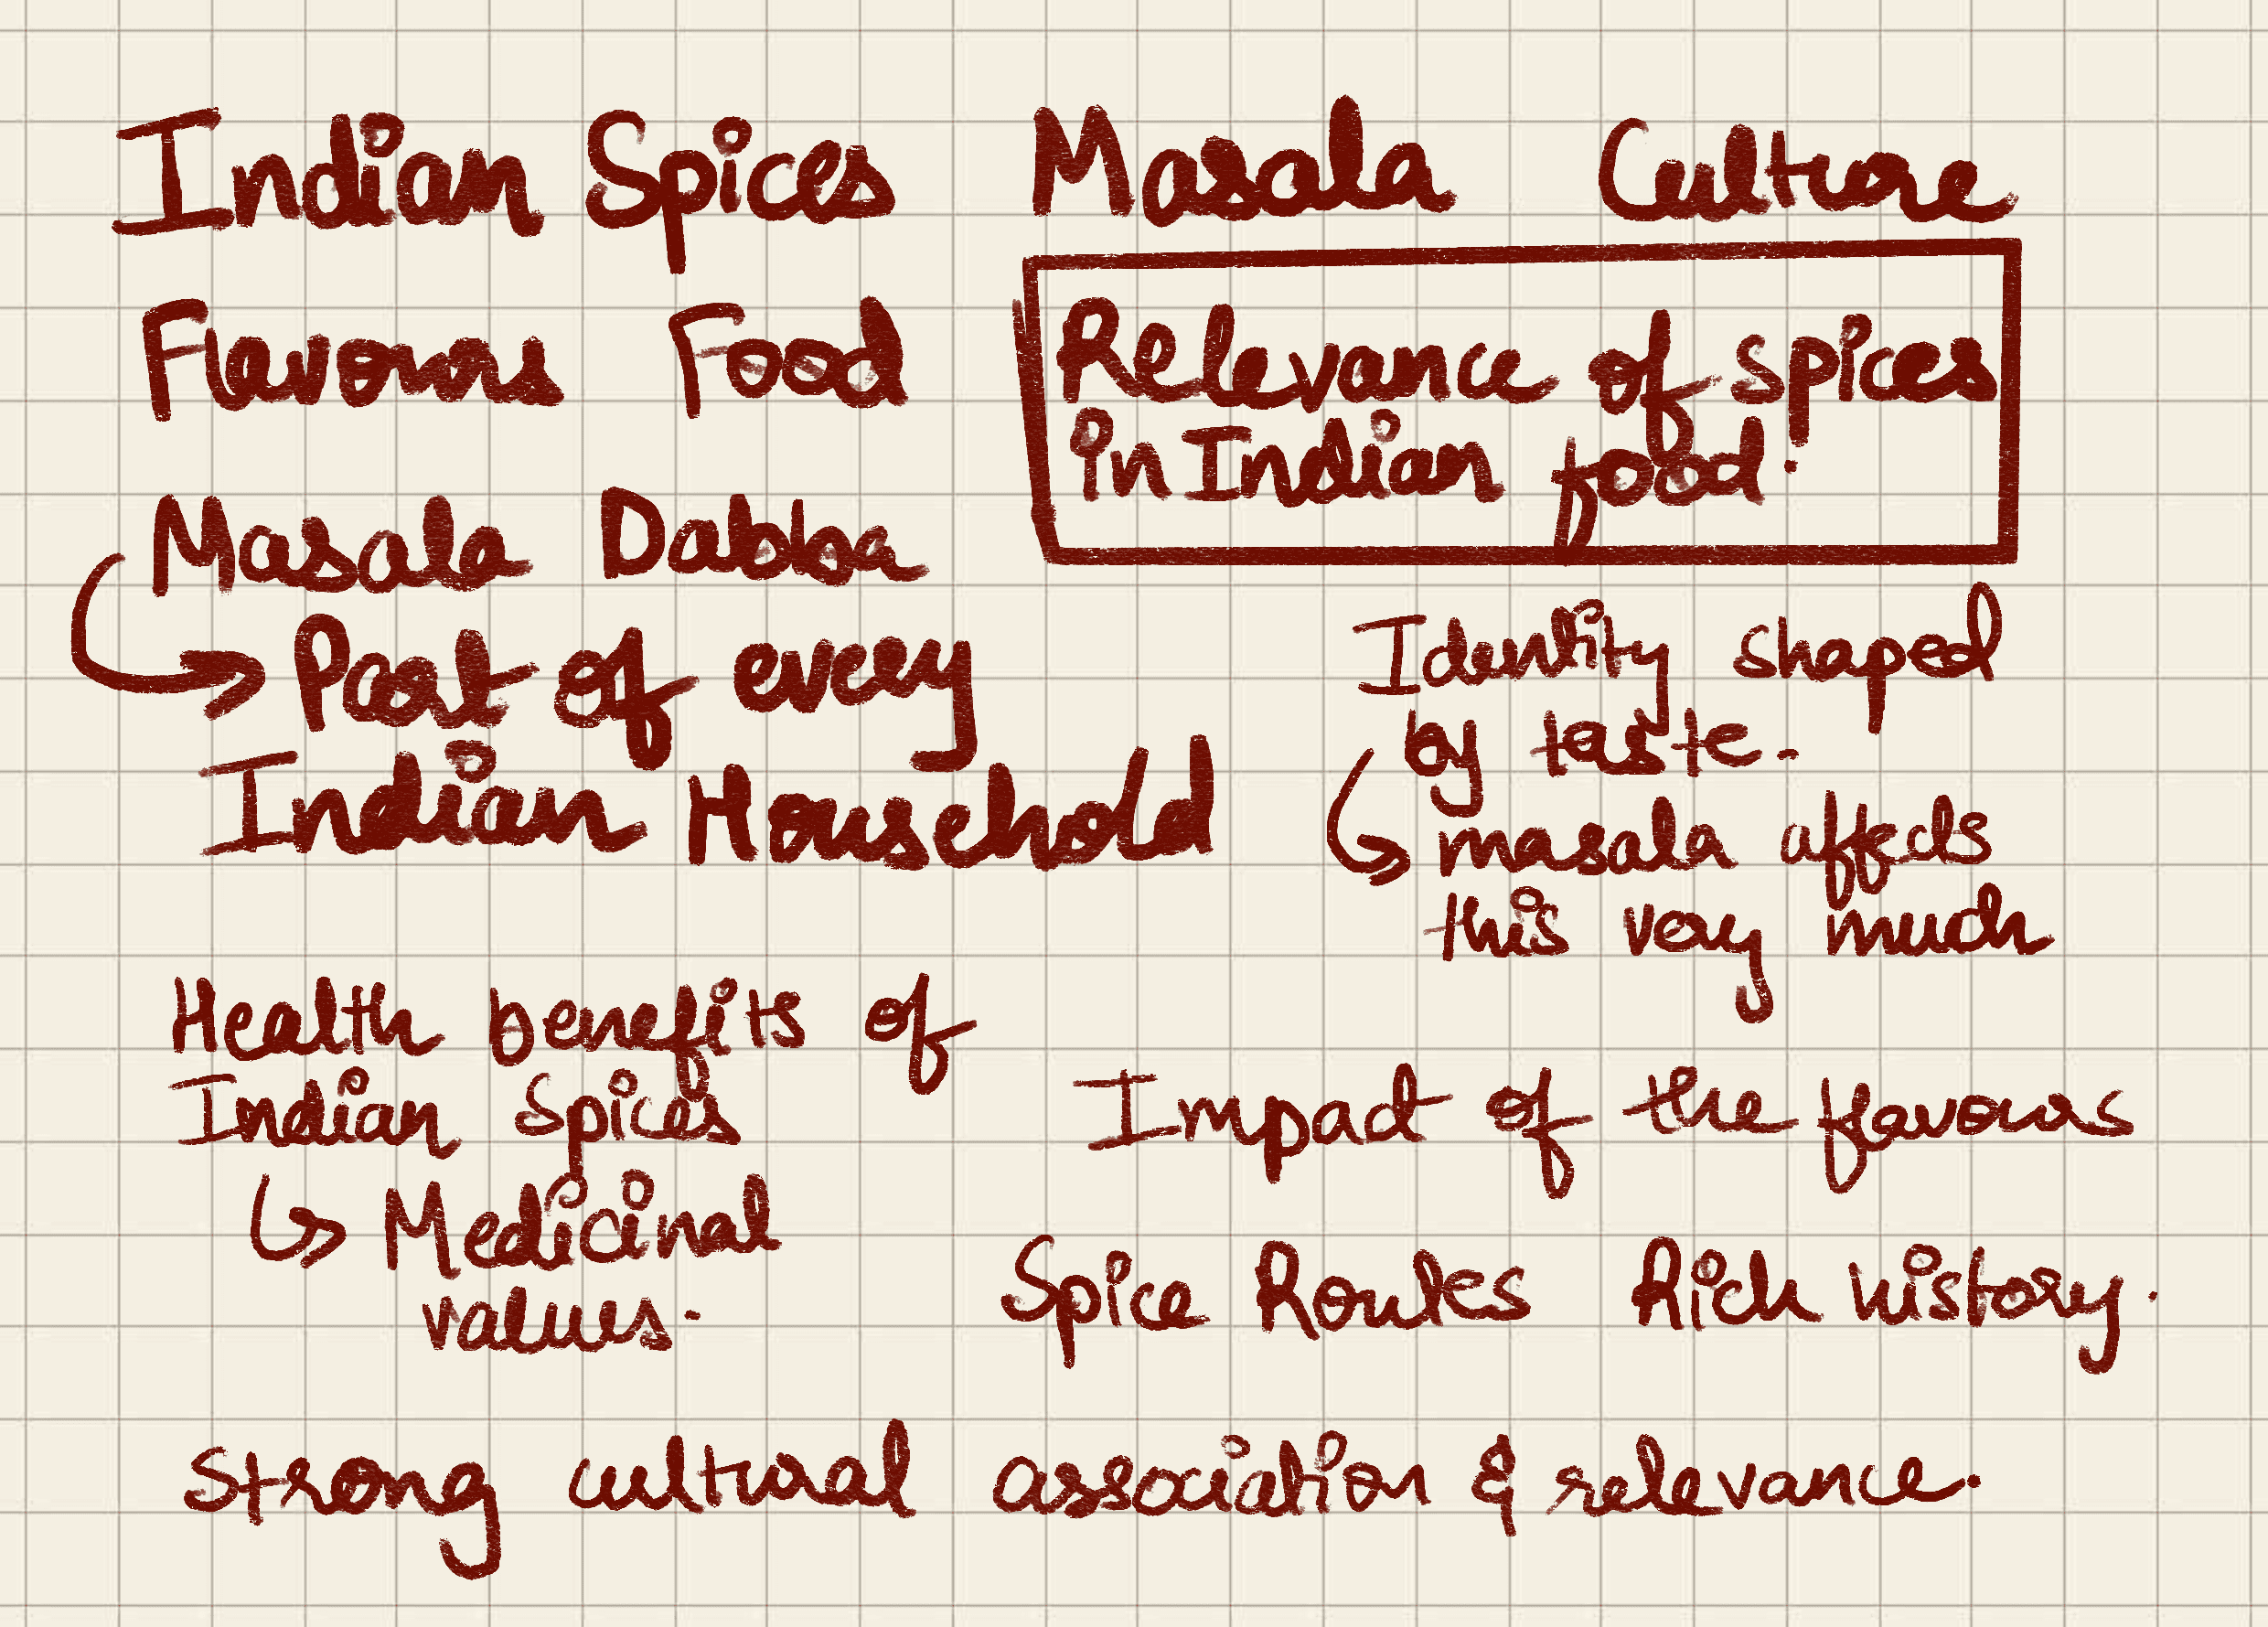 Indian Spices Masala Culture
Flavours Food
Relevance of spices
in Indian food.
Masala Dabba
→ Part of every
Indian Household
Identity shaped
by taste.
→ masala affects
this very much
Health benefits of
Indian Spices
↳ Medicinal
values.
Impact of the flavours
Spice Routes Rich history.
Strong cultural association & relevance.